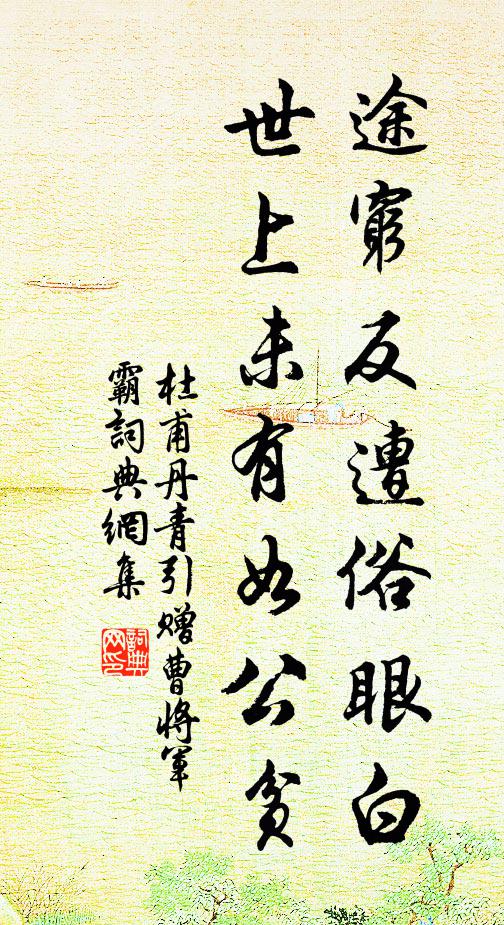 途窮反遭俗眼白
世上未有如公貧
杜甫丹青引贈曹將軍
霸詞典網集
詞典网印